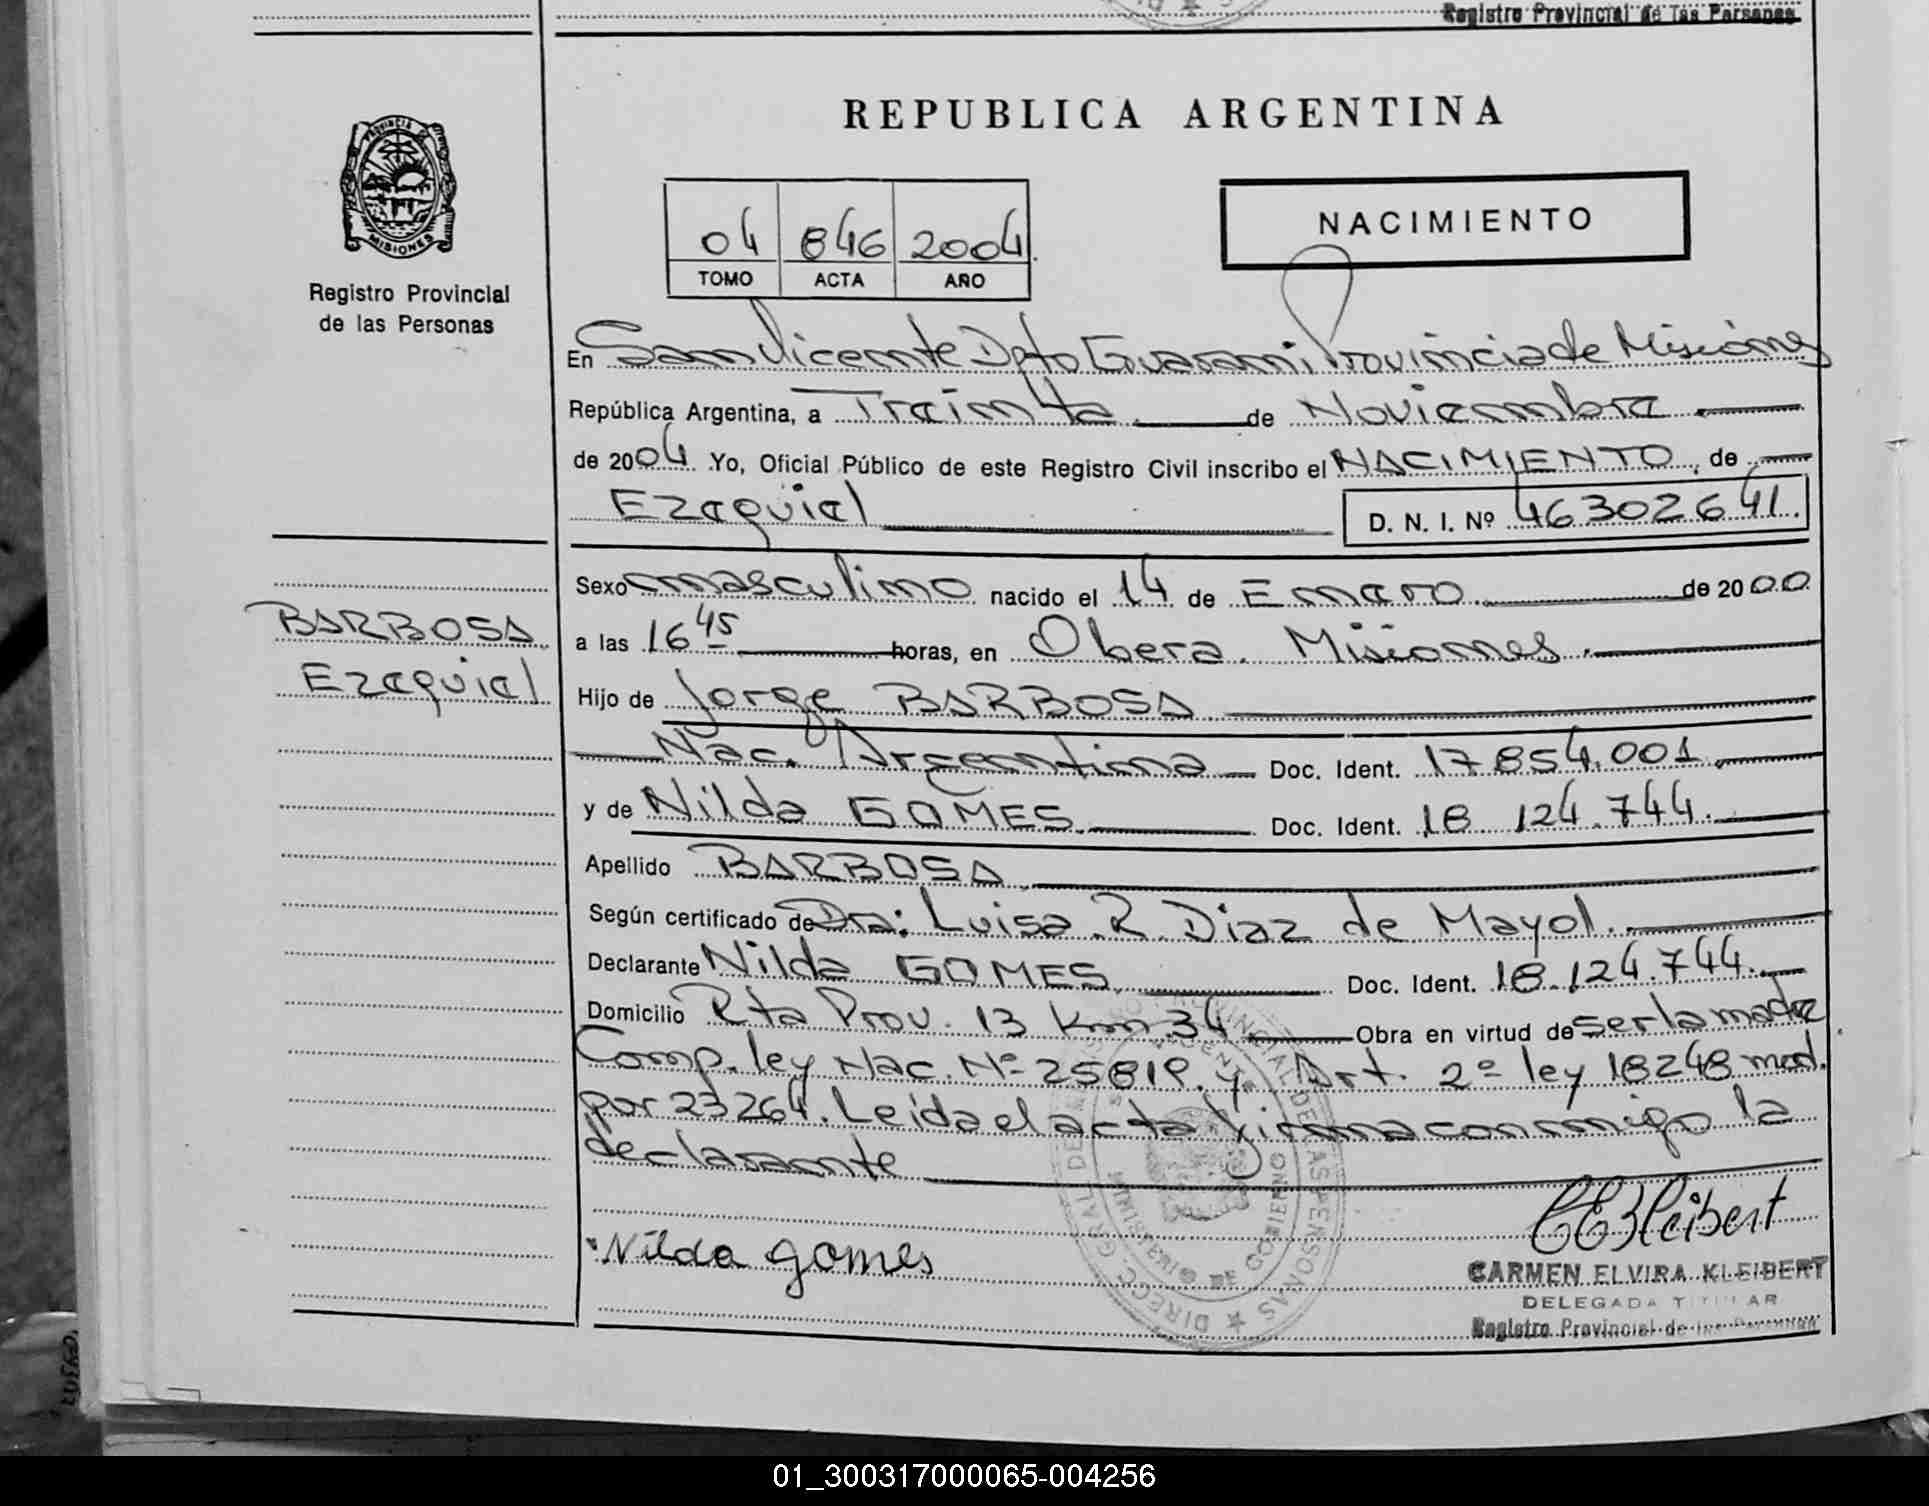 Registro Provincial de las Personas
REPUBLICA ARGENTINA
PROVINCIA DE
MISIONES
Registro Provincial
de las Personas
04 846 2004
TOMO ACTA AÑO
NACIMIENTO
En San Vicente Dpto Guarani Provincia de Misiones
República Argentina, a Treinta de Noviembre
de 2004 Yo, Oficial Público de este Registro Civil inscribo el NACIMIENTO, de
Ezequiel D. N. I. Nº 46302641.
Sexo masculino nacido el 14 de Enero de 2000
BARBOSA
Ezequiel
a las 16 45 horas, en Obera. Misiones.
Hijo de Jorge BARBOSA
Nac. Argentina Doc. Ident. 17.854.001
y de Nilda GOMES Doc. Ident. 18 124.744.
Apellido BARBOSA
Según certificado de Dra: Luisa R. Diaz de Mayol.
Declarante Nilda GOMES Doc. Ident. 18.124.744.
Domicilio Rta Prov. 13 Km 34 Obra en virtud de ser la madre
Comp. ley Nac. Nº 25819. y Art. 2º ley 18248 mod.
por 23264. Leida el acta firma conmigo la
declarante
CEKleibert
Nilda gomes
CARMEN ELVIRA KLEIBERT
DELEGADA TITULAR
Registro Provincial de las Personas
01_300317000065-004256